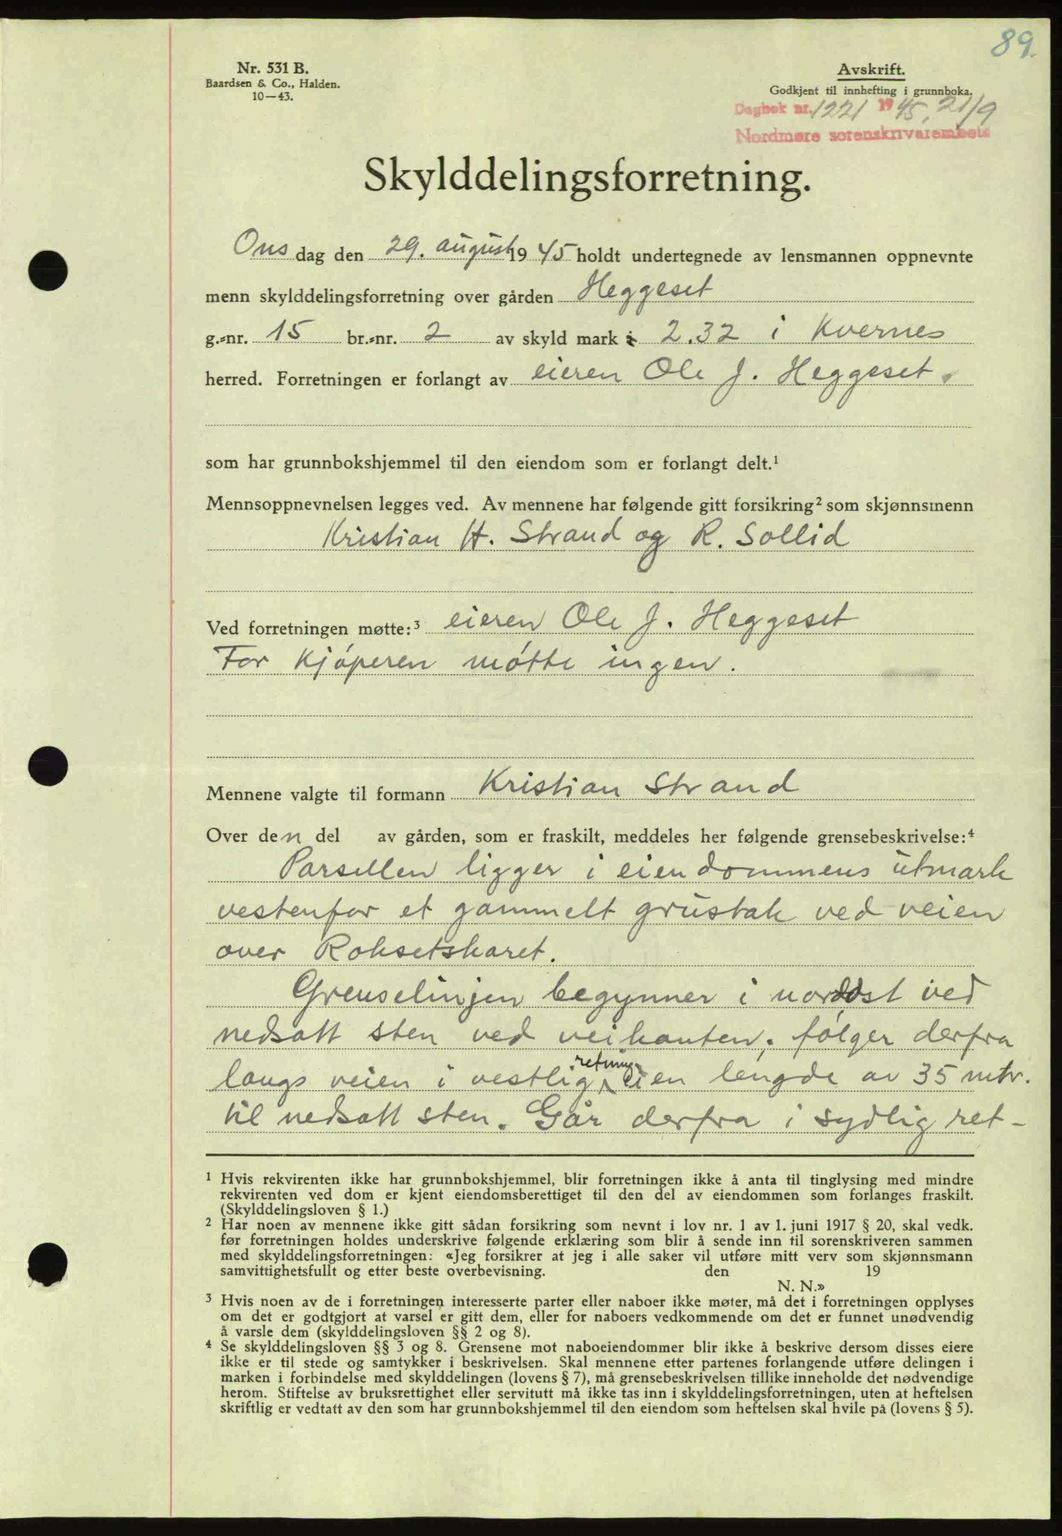 89.
Nr. 531 B.
Baardsen & Co., Halden.
10—43.
Avskrift.
Godkjent til innhefting i grunnboka.
Dagbok nr. 1221 1945, 21/9
Nordmøre sorenskriverembete
Skylddelingsforretning.
Onsdag den 29. august 1945 holdt undertegnede av lensmannen oppnevnte
menn skylddelingsforretning over gården Heggeset
g.-nr. 15 br.-nr. 2 av skyld mark 2.32 i Kvernes
herred. Forretningen er forlangt av eieren Ole J. Heggeset.
som har grunnbokshjemmel til den eiendom som er forlangt delt.¹
Mennsoppnevnelsen legges ved. Av mennene har følgende gitt forsikring² som skjønnsmenn
Kristian H. Strand og R. Sollid
Ved forretningen møtte:³ eieren Ole J. Heggeset
For kjøperen møtte ingen.
Mennene valgte til formann Kristian Strand
Over den del av gården, som er fraskilt, meddeles her følgende grensebeskrivelse:⁴
Parsellen ligger i eiendommens utmark
vestenfor et gammelt grustak ved veien
over Roksetskaret.
Grenselinjen begynner i nordøst ved
nedsatt sten ved veikanten, følger derfra
langs veien i vestlig retning i en lengde av 35 mtr.
til nedsatt sten. Går derfra i sydlig ret-
¹ Hvis rekvirenten ikke har grunnbokshjemmel, blir forretningen ikke å anta til tinglysing med mindre
rekvirenten ved dom er kjent eiendomsberettiget til den del av eiendommen som forlanges fraskilt.
(Skylddelingsloven § 1.)
² Har noen av mennene ikke gitt sådan forsikring som nevnt i lov nr. 1 av 1. juni 1917 § 20, skal vedk.
før forretningen holdes underskrive følgende erklæring som blir å sende inn til sorenskriveren sammen
med skylddelingsforretningen: «Jeg forsikrer at jeg i alle saker vil utføre mitt verv som skjønnsmann
samvittighetsfullt og etter beste overbevisning. den 19
N. N.»
³ Hvis noen av de i forretningen interesserte parter eller naboer ikke møter, må det i forretningen opplyses
om det er godtgjort at varsel er gitt dem, eller for naboers vedkommende om det er funnet unødvendig
å varsle dem (skylddelingsloven §§ 2 og 8).
⁴ Se skylddelingsloven §§ 3 og 8. Grensene mot naboeiendommer blir ikke å beskrive dersom disses eiere
ikke er til stede og samtykker i beskrivelsen. Skal mennene etter partenes forlangende utføre delingen i
marken i forbindelse med skylddelingen (lovens § 7), må grensebeskrivelsen tillike inneholde det nødvendige
herom. Stiftelse av bruksrettighet eller servitutt må ikke tas inn i skylddelingsforretningen, uten at heftelsen
skriftlig er vedtatt av den som har grunnbokshjemmel til den eiendom som heftelsen skal hvile på (lovens § 5).